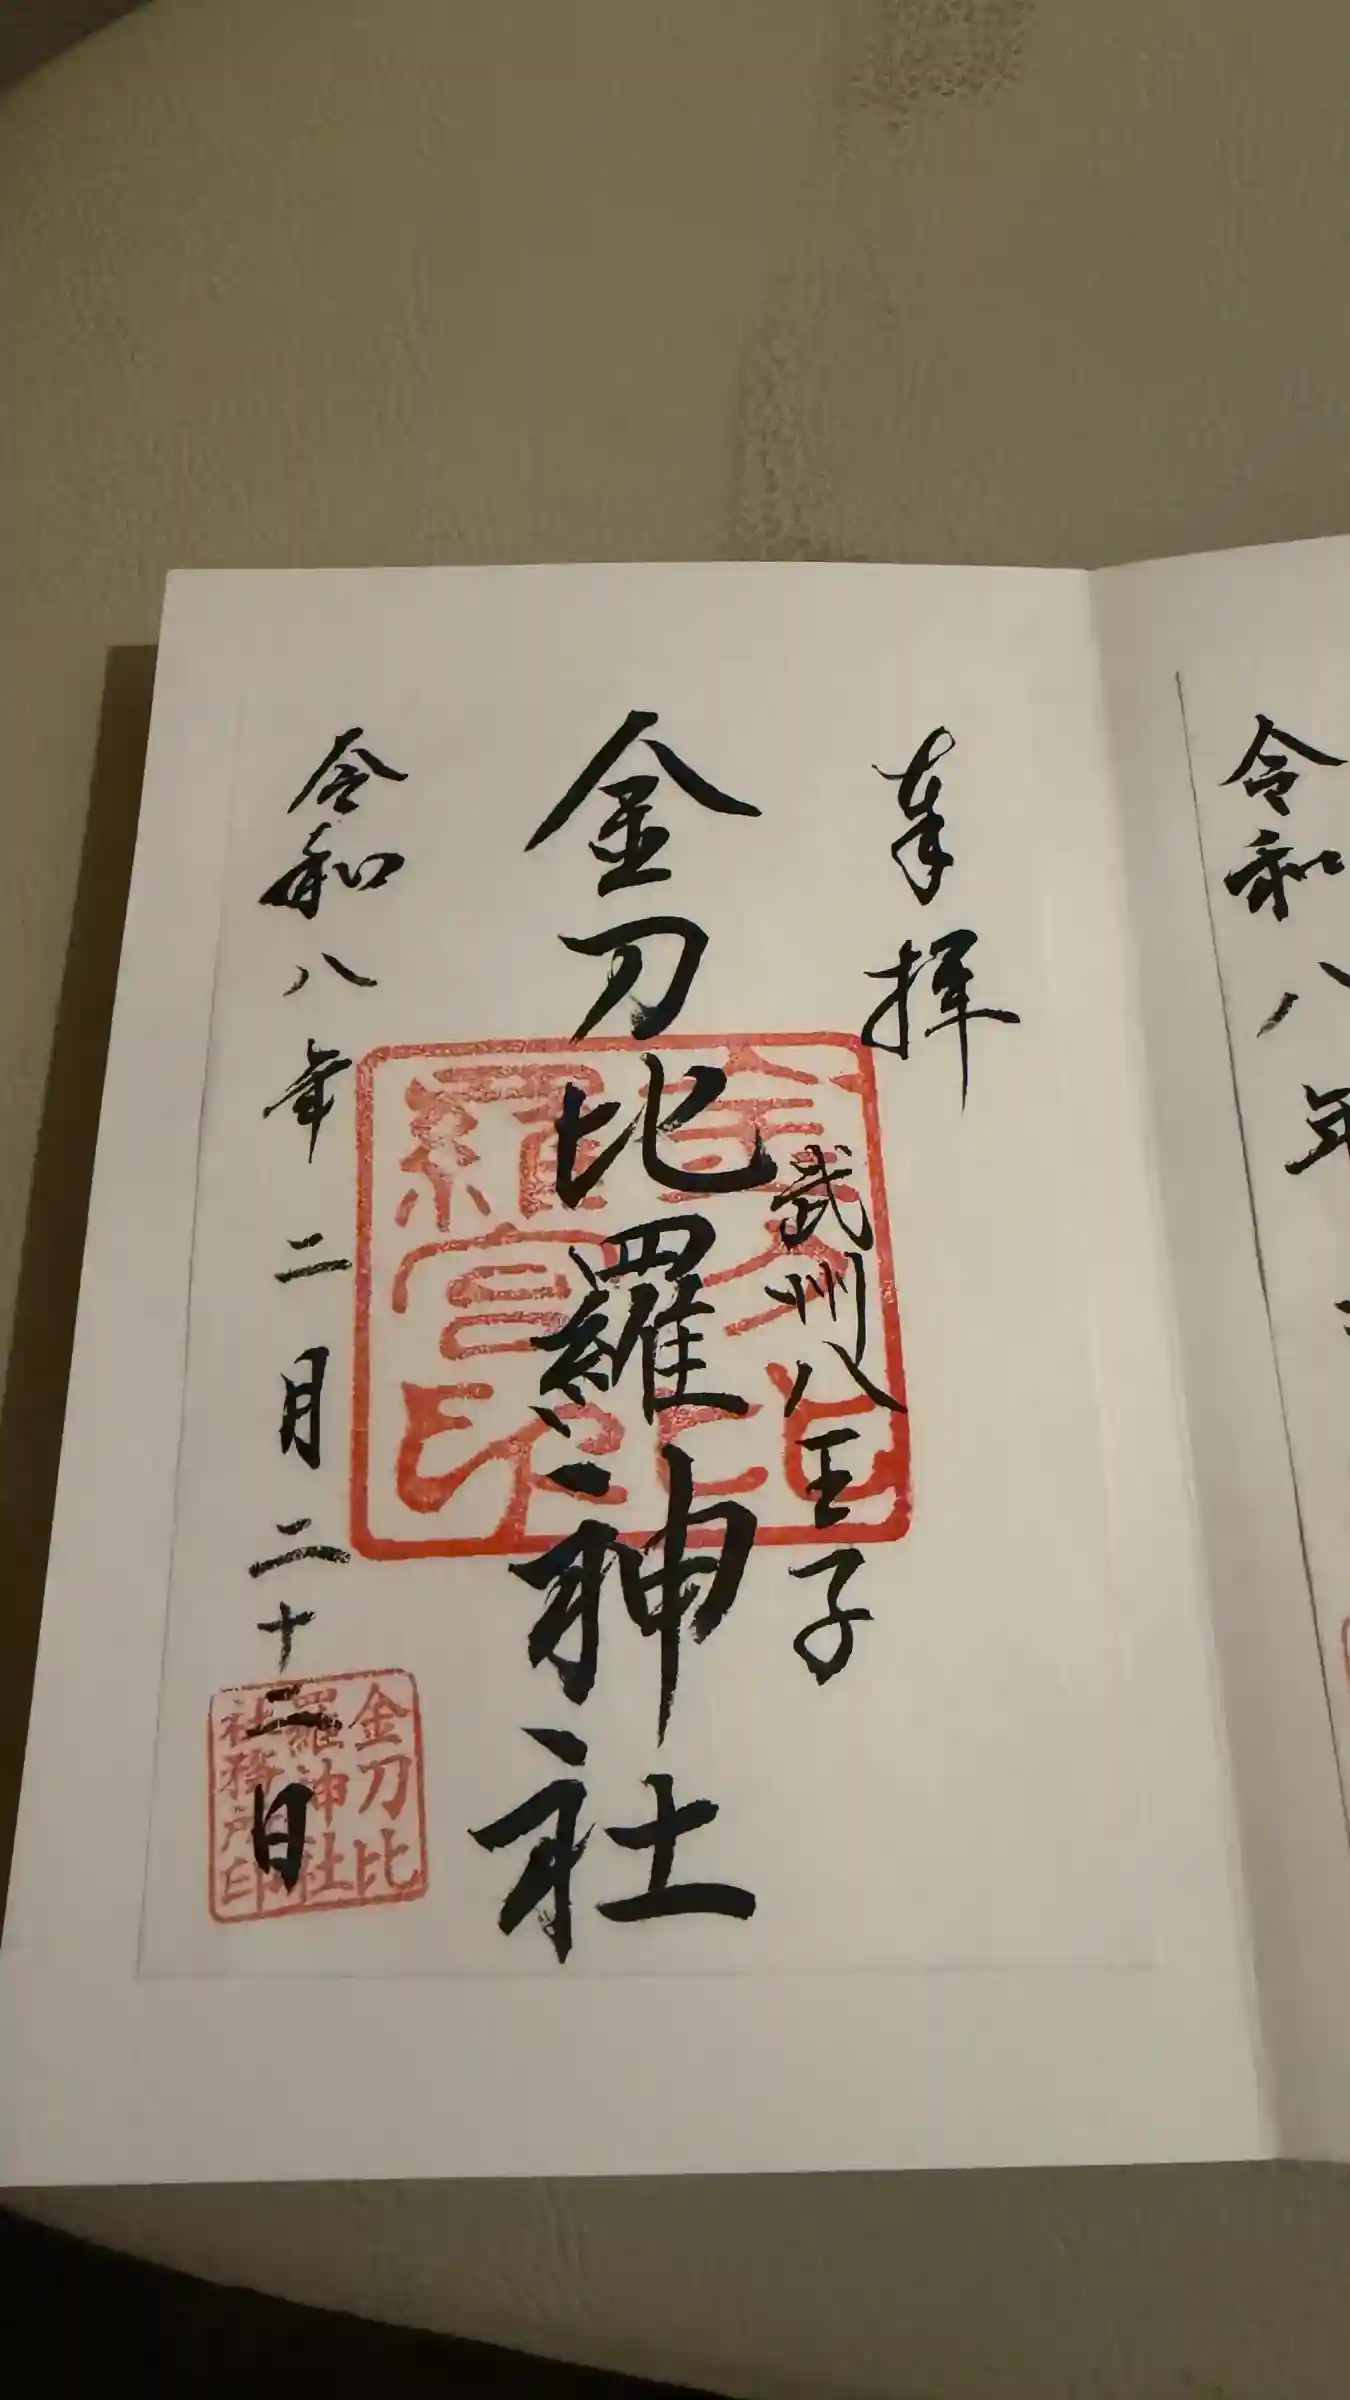 令和八年
奉拝
武州八王子
金刀比羅神社
令和八年二月二十二日
金刀比
羅宮印
金刀比
羅神社
社務所印